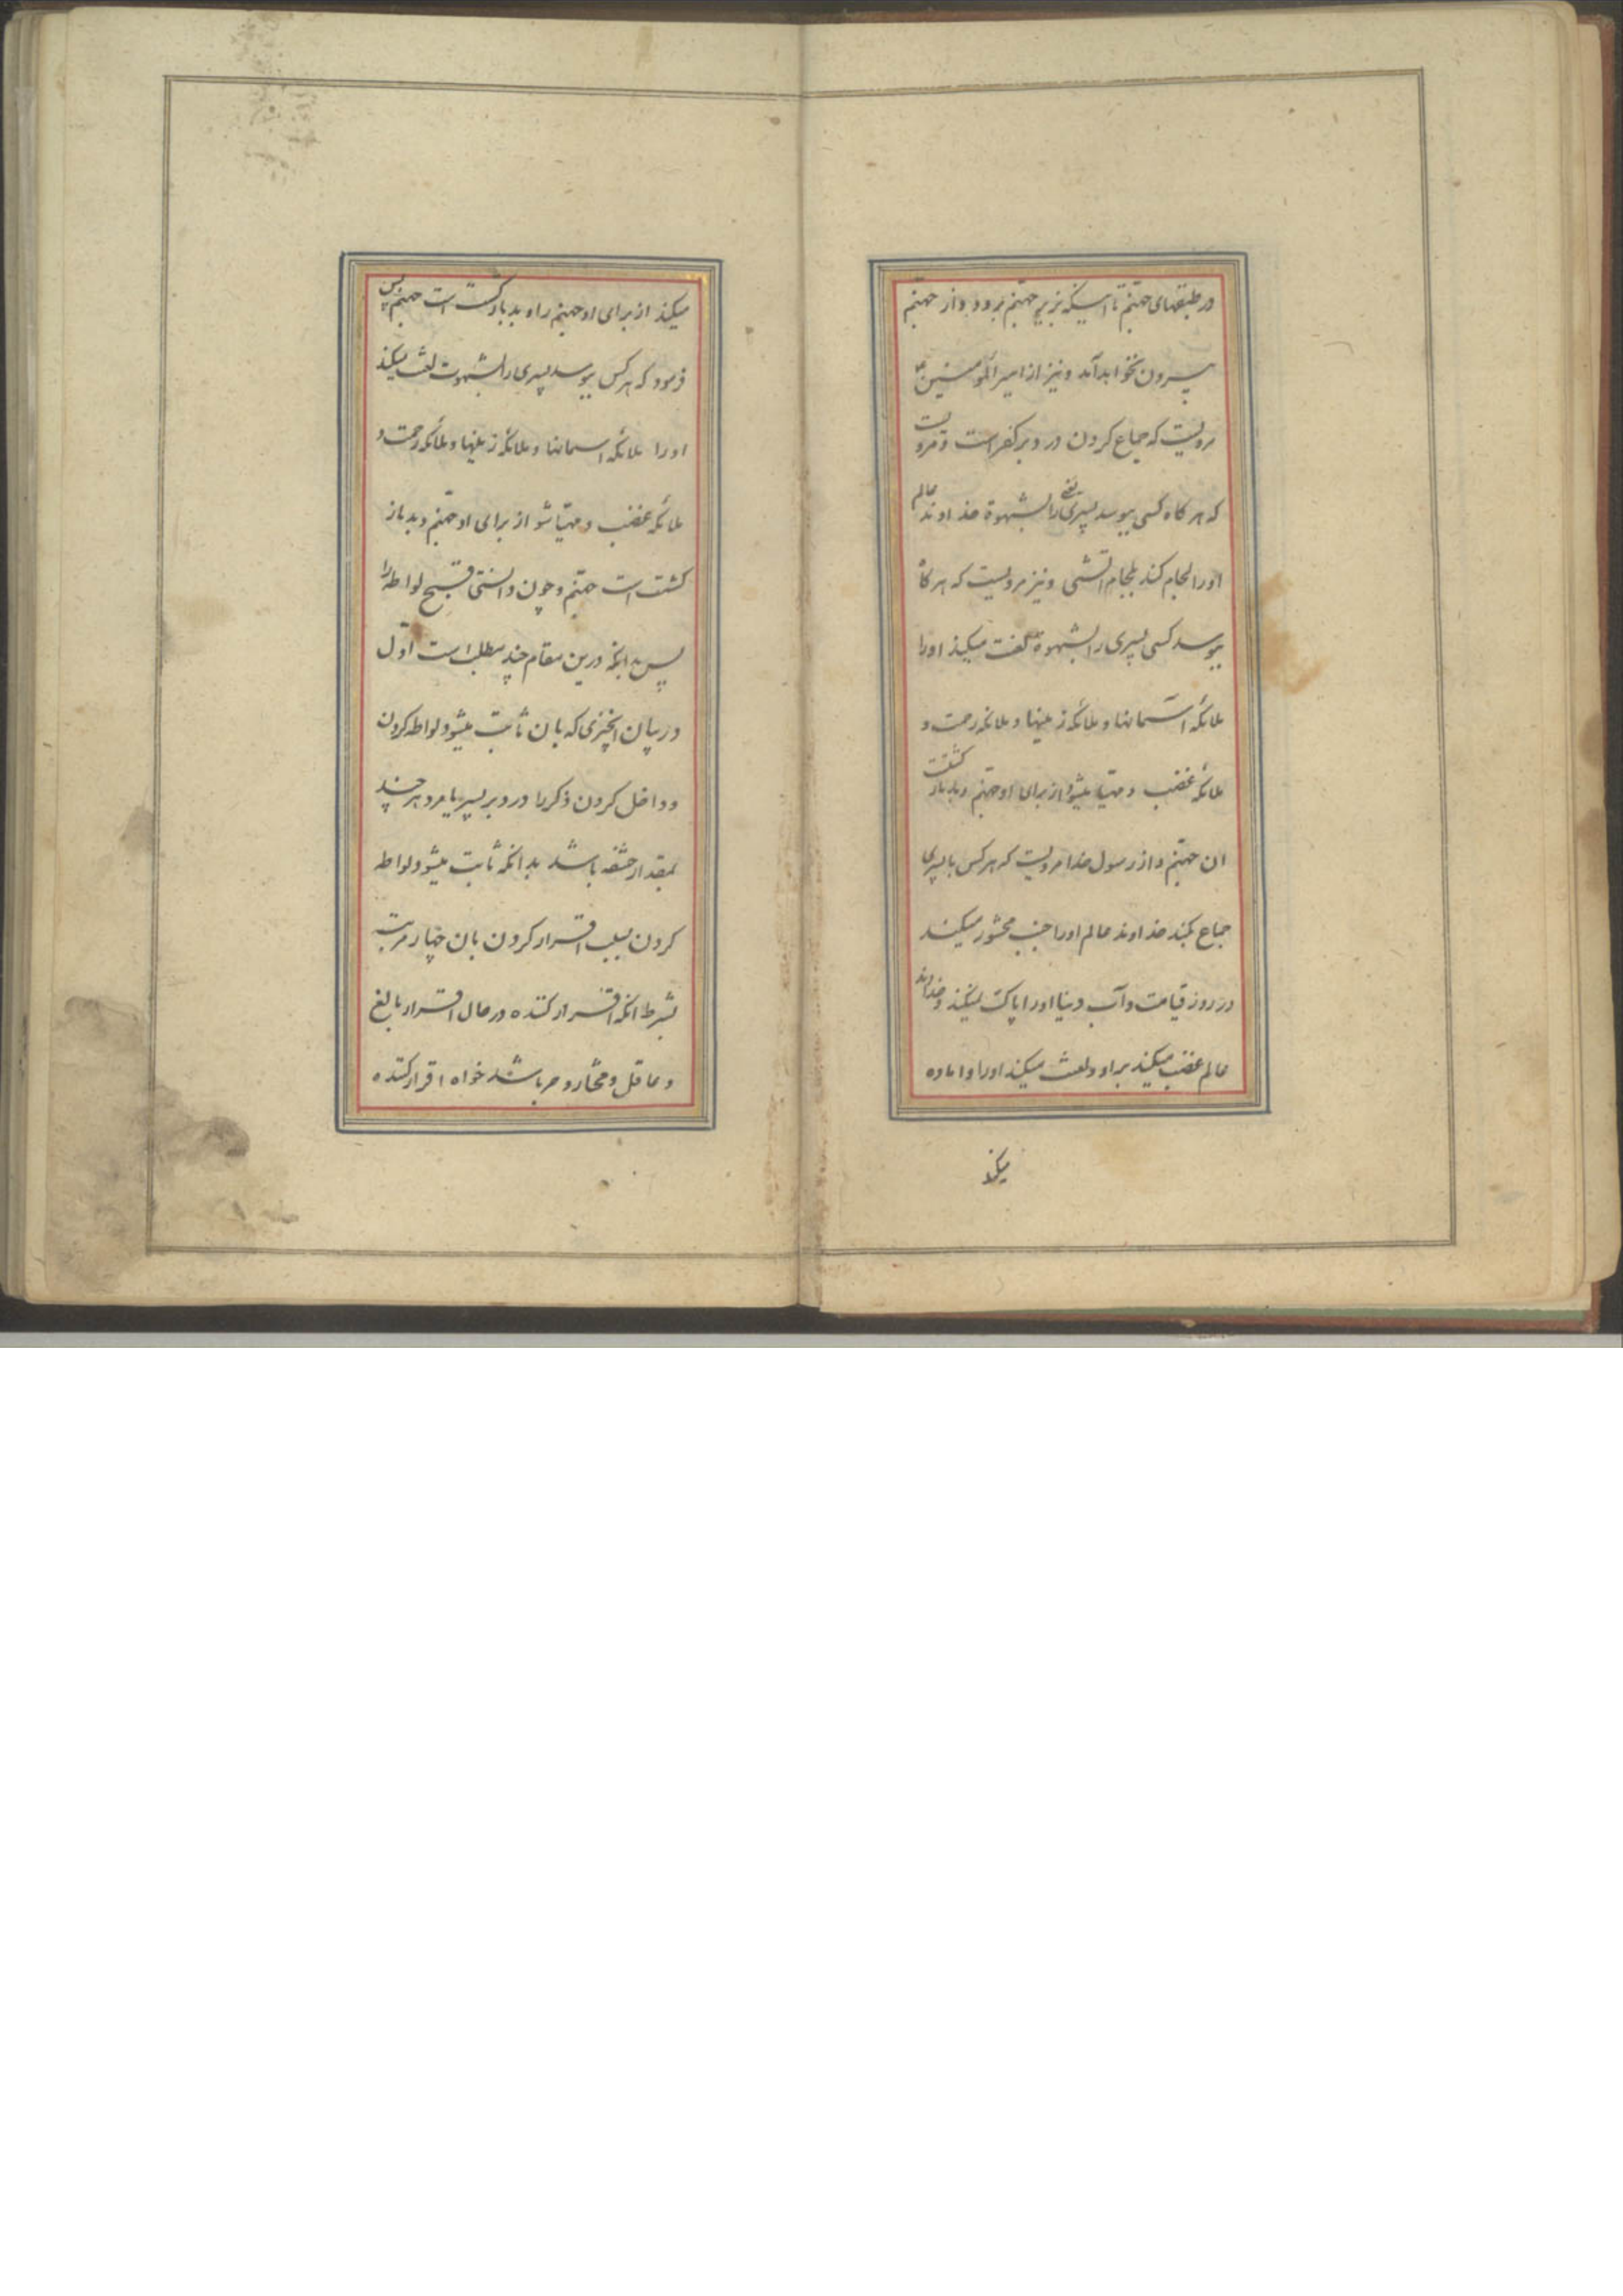 در طبقهای جهنم تا اینکه بزیر جهنم برود و از جهنم
بیرون نخواهد آمد و نیز از امیر المومنین ع
مرویست که جماع کردن در دبر کفر است و مرویست
که هر کاه کسی ببوسد پسری را بشهوة خداوند عالم
اورا لجام کند بلجام اتشی و نیز مرویست که هر کاه
ببوسد کسی پسری را بشهوة لعنت میکند اورا
ملائکه آسمانها و ملائکه زمینها و ملائکه رحمت و
ملائکه غضب و مهیا میشود از برای او جهنم و بد باز کشتت
ان جهنم و از رسول خدا مرویست که هر کس با پسری
جماع بکند خداوند عالم اورا جنب محشور میکند
در روز قیامت و آب دنیا اورا پاک نمیکند و خداوند
عالم غضب میکند بر او و لعنت میکند اورا و اماده
میکند
میکند از برای او جهنم را و بد باز کشت است جهنم پس
فرمود که هر کس ببوسد پسری را بشهوت لعنت میکند
اورا ملائکه اسمانها و ملائکه زمینها و ملائکه رحمت و
ملائکه غضب و مهیا شود از برای او جهنم و بد باز
کشت است جهنم و چون دانستی قبح لواطه را
پس بدانکه درین مقام چند مطلب است اول
در بیان انچیزی که بان ثابت میشود لواطه کردن
و داخل کردن ذکر را در دبر پسر یا مرد هر چند
بمقدار حشفه باشد بدانکه ثابت میشود لواطه
کردن بسبب اقرار کردن بان چهار مرتبه
بشرط انکه اقرار کننده در حال اقرار بالغ
و عاقل و مختار و حر باشد خواه اقرار کننده